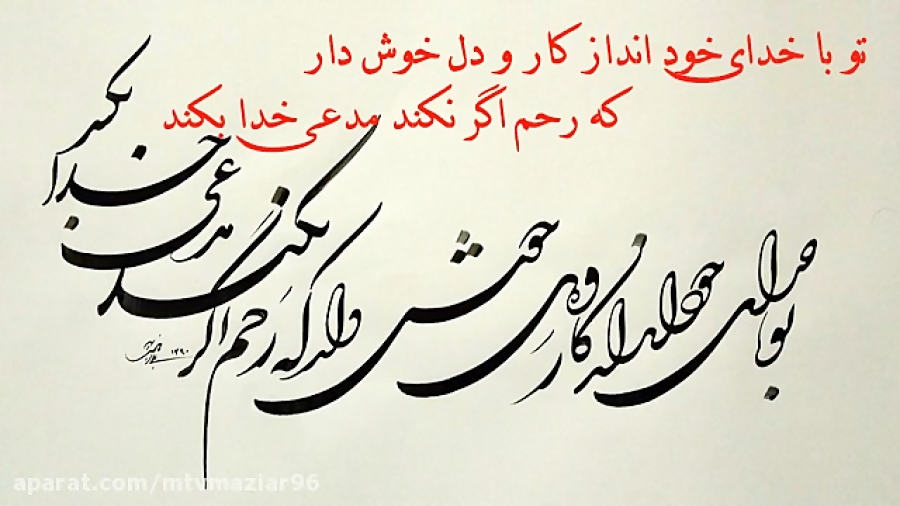 تو با خدای خود انداز کار و دل خوش دار
که رحم اگر نکند مدعی خدا بکند
تو با خدای خود انداز کار و دل خوش دار که رحم اگر نکند مدعی خدا بکند
۱۳۹۰
aparat.com/mtvmaziar96